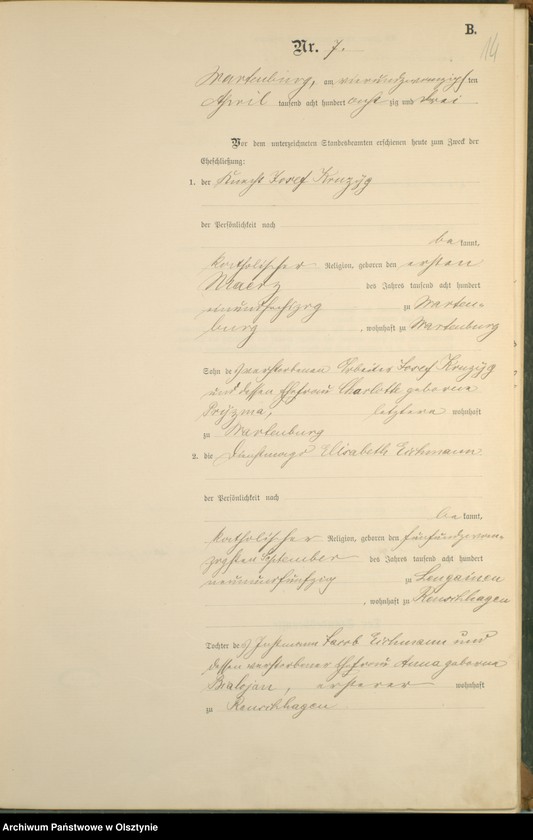 B.
14
Nr. 7.
Wartenburg, am vierundzwanzigsten
April tausend acht hundert acht zig und drei
Vor dem unterzeichneten Standesbeamten erschienen heute zum Zweck der
Eheschließung:
1. der Knecht Josef Kruzyg
der Persönlichkeit nach
be kannt,
katholischer Religion, geboren den ersten
Maerz des Jahres tausend acht hundert
einundsechszig zu Warten-
burg, wohnhaft zu Wartenburg
Sohn des verstorbenen Arbeiters Josef Kruzyg
und dessen Ehefrau Charlotte geborene
Pryzma, letztere wohnhaft
zu Wartenburg
2. die Dienstmagd Elisabeth Eichmann
der Persönlichkeit nach
be kannt,
katholischer Religion, geboren den fünfundzwan-
zigsten September des Jahres tausend acht hundert
neunundfünfzig zu Lengainen
, wohnhaft zu Reuschhagen
Tochter des Instmann Jacob Eichmann und
dessen verstorbener Ehefrau Anna geborene
Bialojan, ersterer wohnhaft
zu Reuschhagen
Archiwum Państwowe w Olsztynie